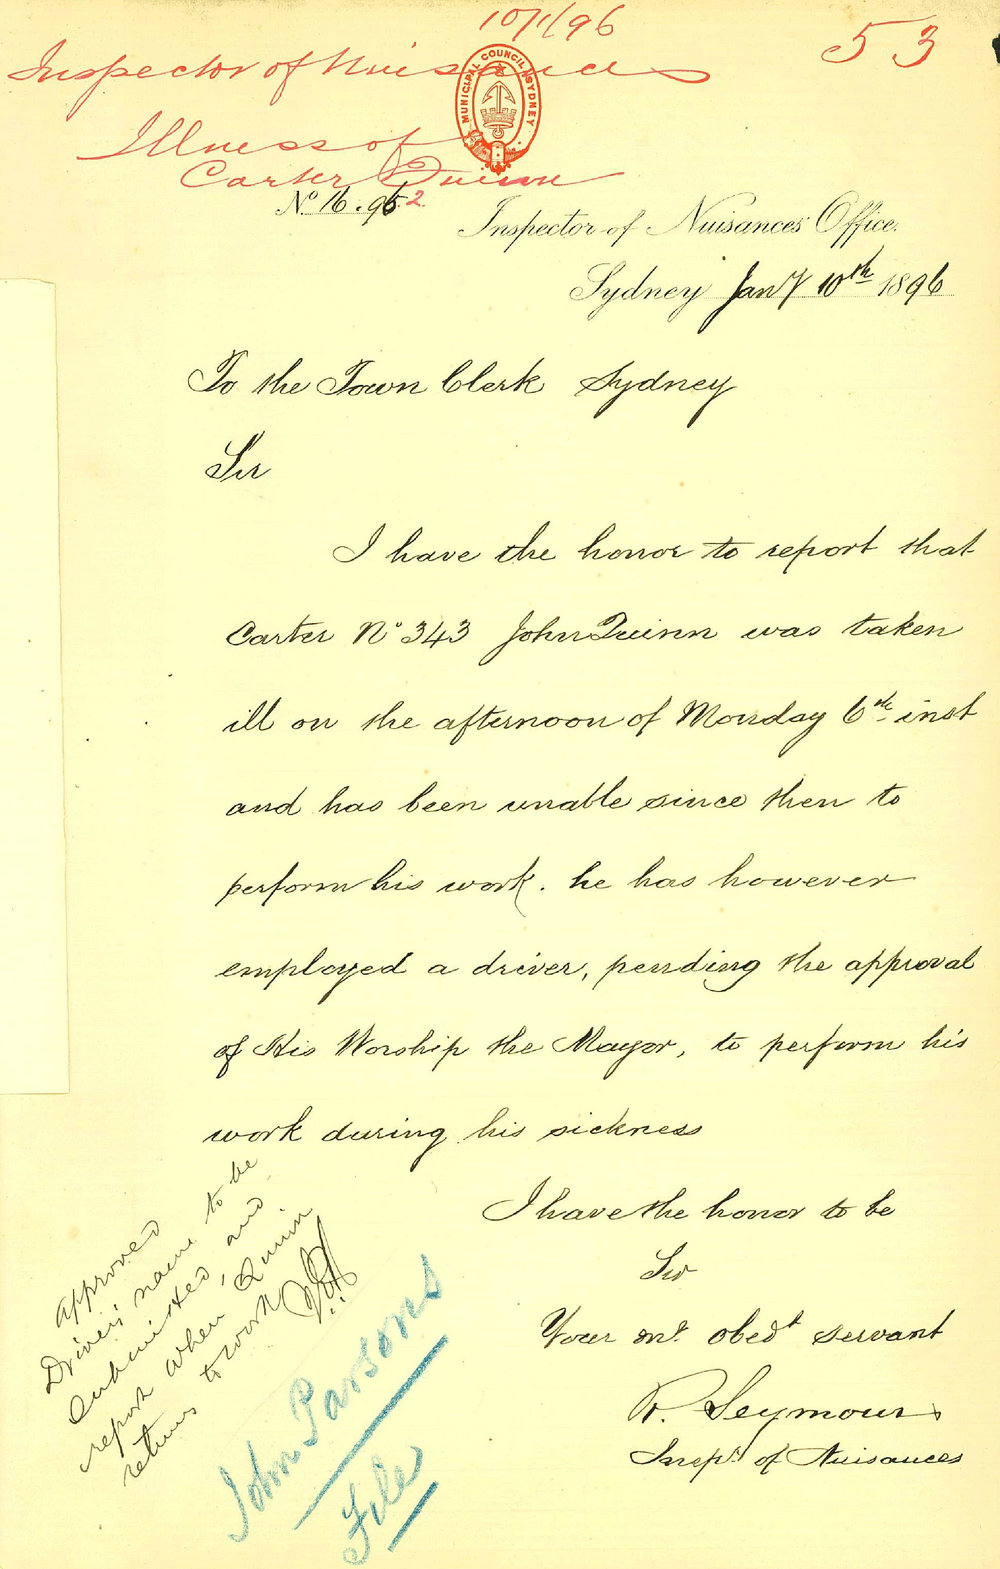 10/1/96
53
Inspector of Nuisances
MUNICIPAL COUNCIL SYDNEY
Illness of
Carter Quinn
No 16.96 2
Inspector of Nuisances' Office.
Sydney Jany 10th 1896
To the Town Clerk Sydney
Sir
I have the honor to report that
Carter No 343 John Quinn was taken
ill on the afternoon of Monday 6th inst
and has been unable since then to
perform his work. he has however
employed a driver, pending the approval
of His Worship the Mayor, to perform his
work during his sickness
I have the honor to be
Sir
Your mt obedt servant
R. Seymour
Inspr of Nuisances
approved
Drivers name to be
submitted, and
report when Quinn
returns to work
John Parsons
File